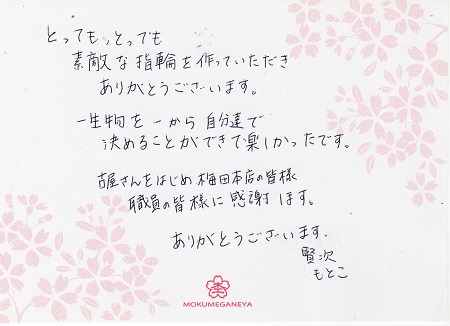 とってもとっても
素敵な指輪を作っていただき
ありがとうございます。
一生物を一から自分達で
決めることができて楽しかったです。
古屋さんをはじめ梅田本店の皆様
職員の皆様に感謝します。
ありがとうございます.
賢次
もとこ
MOKUMEGANEYA